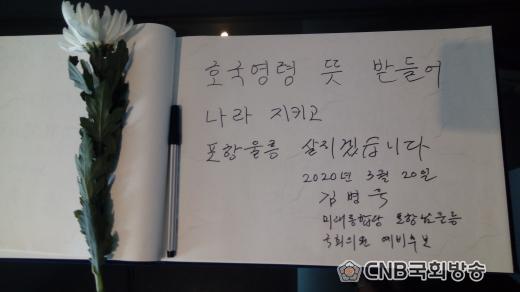 호국영령 뜻 받들어
나라 지키고
포항울릉 살피겠습니다
2020년 3월 20일
김병욱
미래통합당 포항남울릉
국회의원 예비후보
CNB국회방송